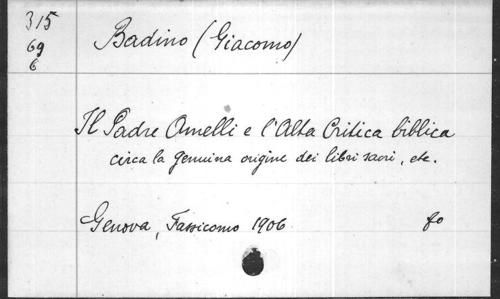 315
69
6
Badino (Giacomo)
Il Padre Amelli e l'Alta Critica biblica
circa la genuina origine dei libri sacri, etc.
Genova, Fassicomo 1906
fo